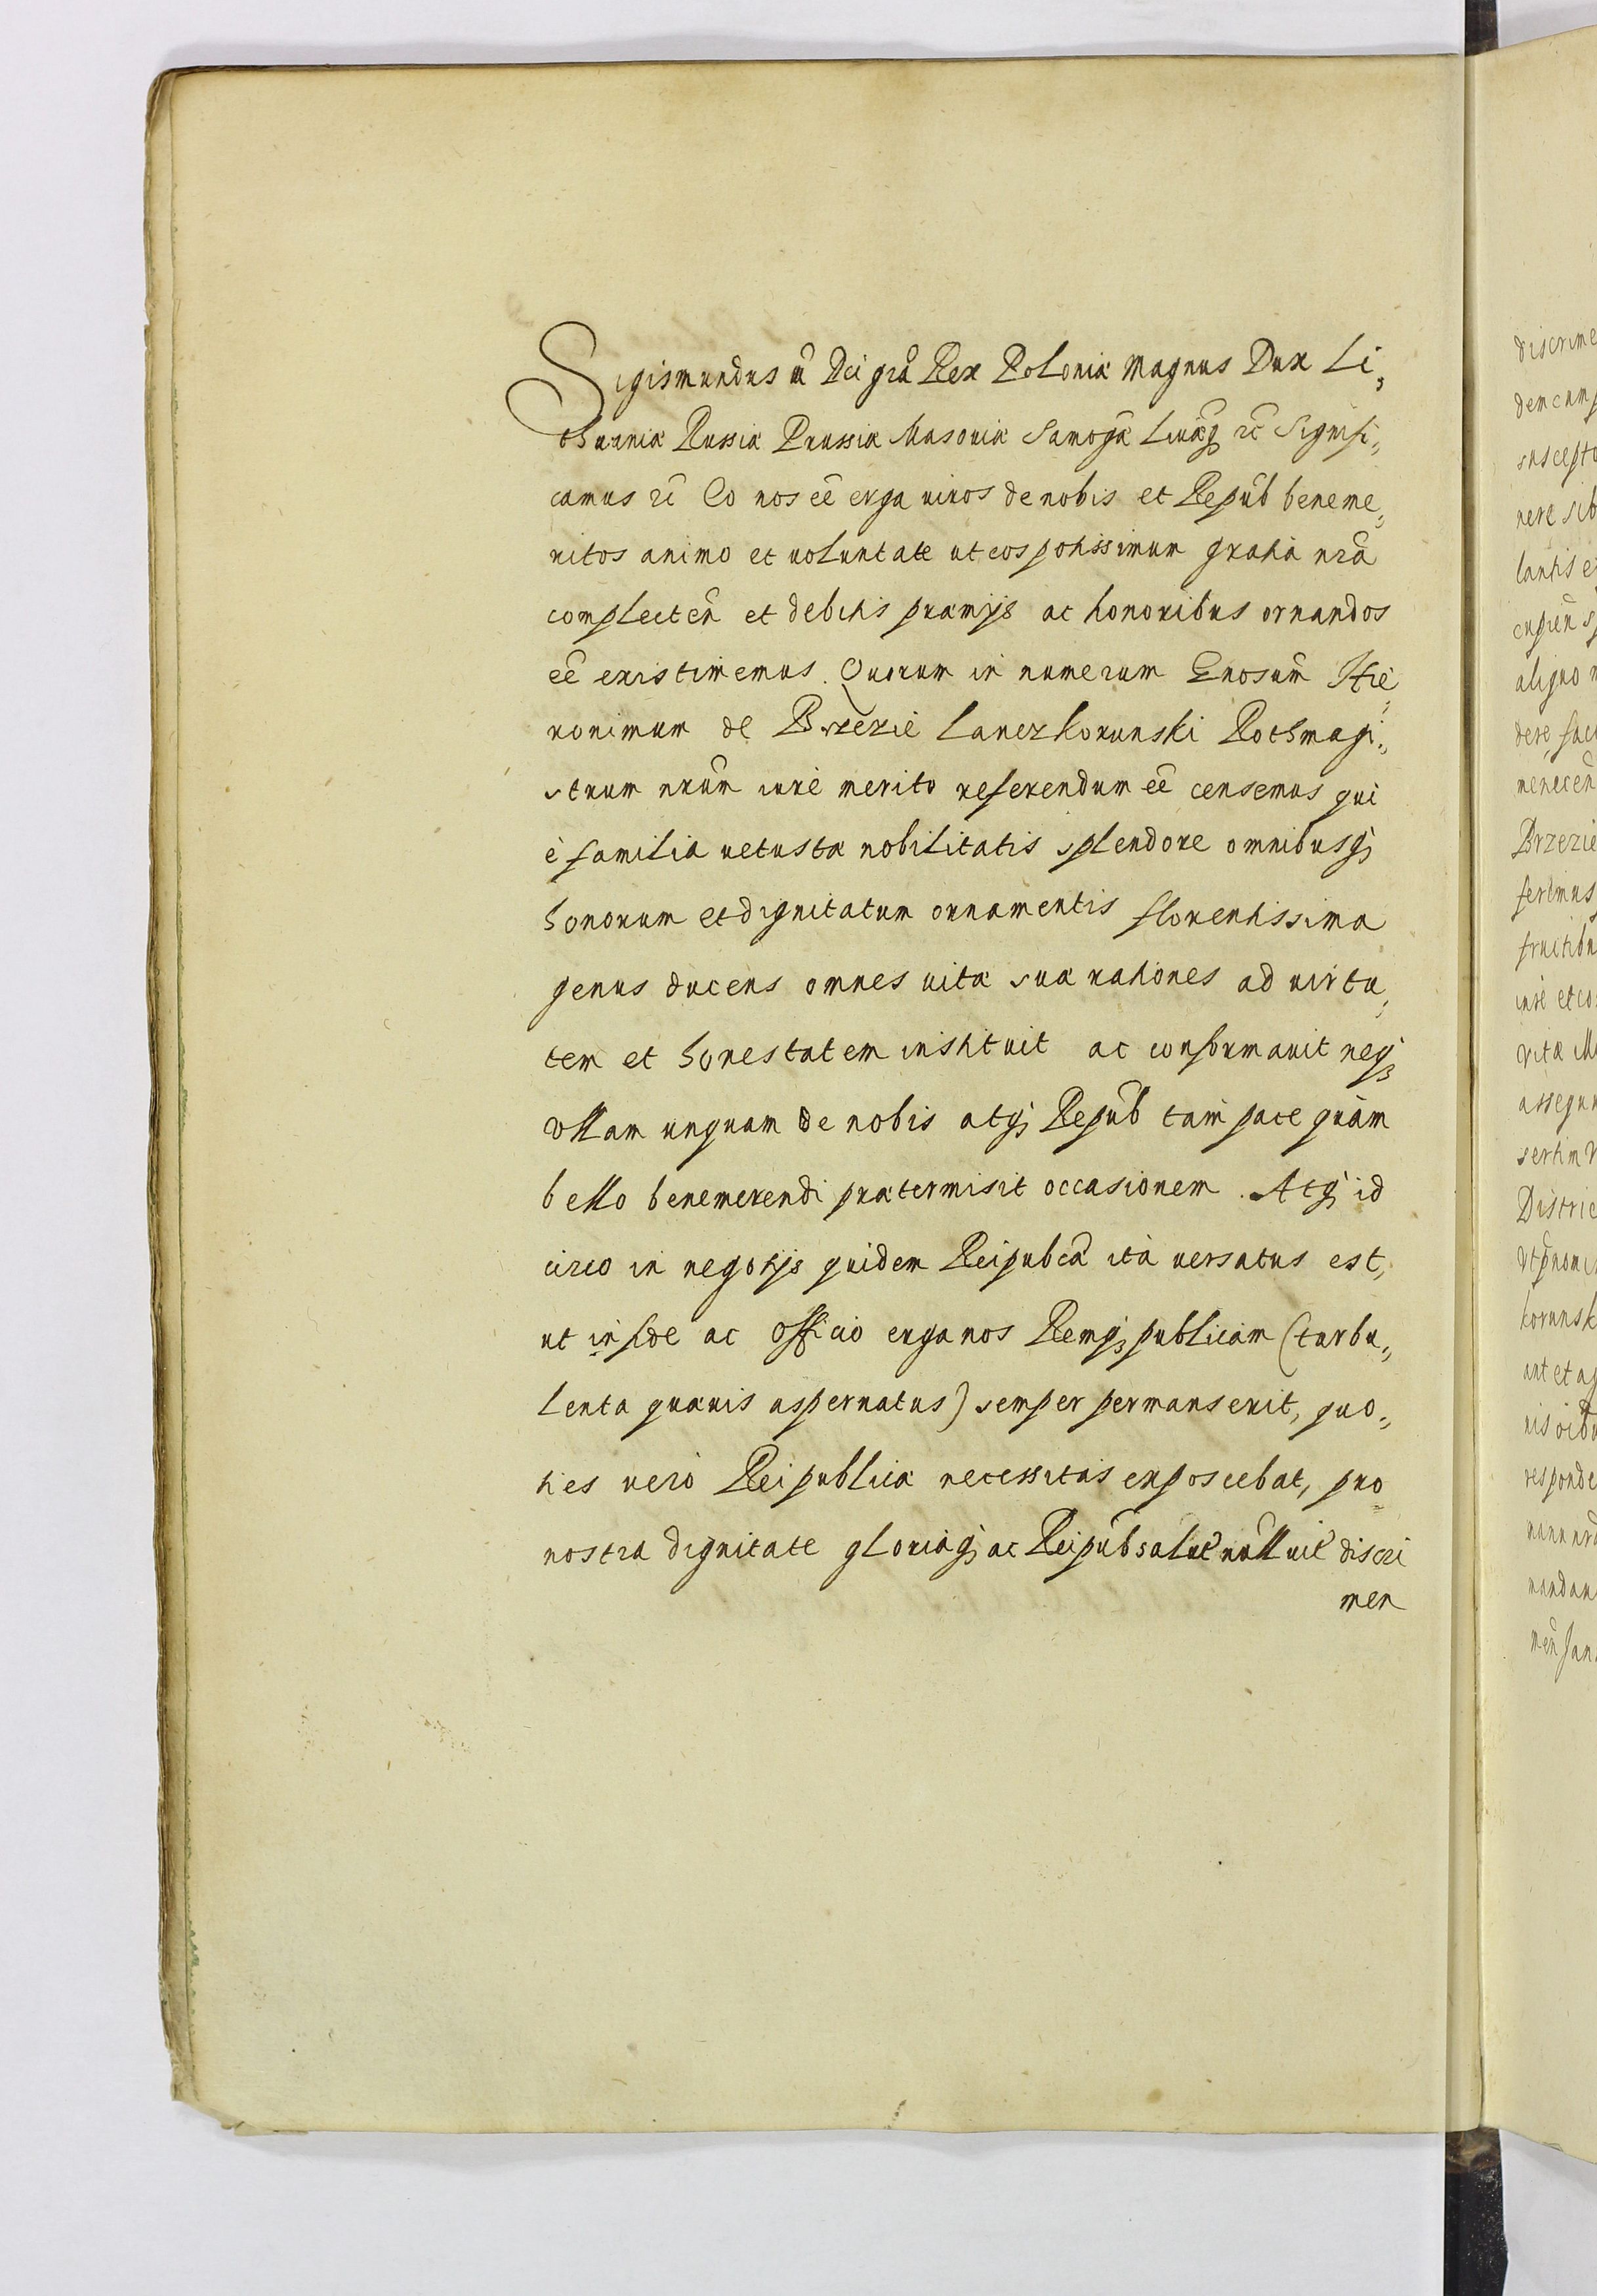 Sigismundus iii Dei grã Rex Poloniæ Magnus Dux Li„
thuaniæ Russiæ Prussiæ Masoviæ Samogæ̃ Livæ̃q; ꝛc̃ Signifi„
camus ꝛc̃ Eo nos eẽ erga viros de nobis et Repub̃ beneme„
ritos animo et voluntate ut eos potissimum gratia nr̃a
complecteñ et debitis præmijs ac honoribus ornandos
eẽ existimemus. Quorum in numerum Gnosum̃ Hie„
ronimum de Brzezie Lanczkorunski Rothmagi„
strum nr̃um iure merito referendum eẽ censemus qui
è familia vetustæ nobilitatis splendore omnibusq;
honorum et dignitatum ornamentis florentissima
genus ducens omnes vitæ suæ rationes ad virtu„
tem et honestatem instituit ac conformavit neq;
vllam unquam de nobis atq; Repub̃ tam pace quàm
bello benemerendi prætermisit occasionem. Atq; id
circo in negotijs quidem Reipubcæ̃ ità versatus est,
ut in fide ac officio erga nos Remq; publicam (turbu„
lenta quævis aspernatus) semper permanserit, quo„
ties verò Reipublicæ necessitas exposcebat, pro
nostra dignitate gloriaq; ac Reipub̃ salute nullũ vitẽ discri
men
discrime
dem cum
suscepto
nere sib
lantis e
cupien s
aliquo
dere fac
menecen
Brzezie
ferimus
fruitibu
iure et co
vitæ M
assequ
sertim V
Distric
korunsk
ant et a
responde
mandan